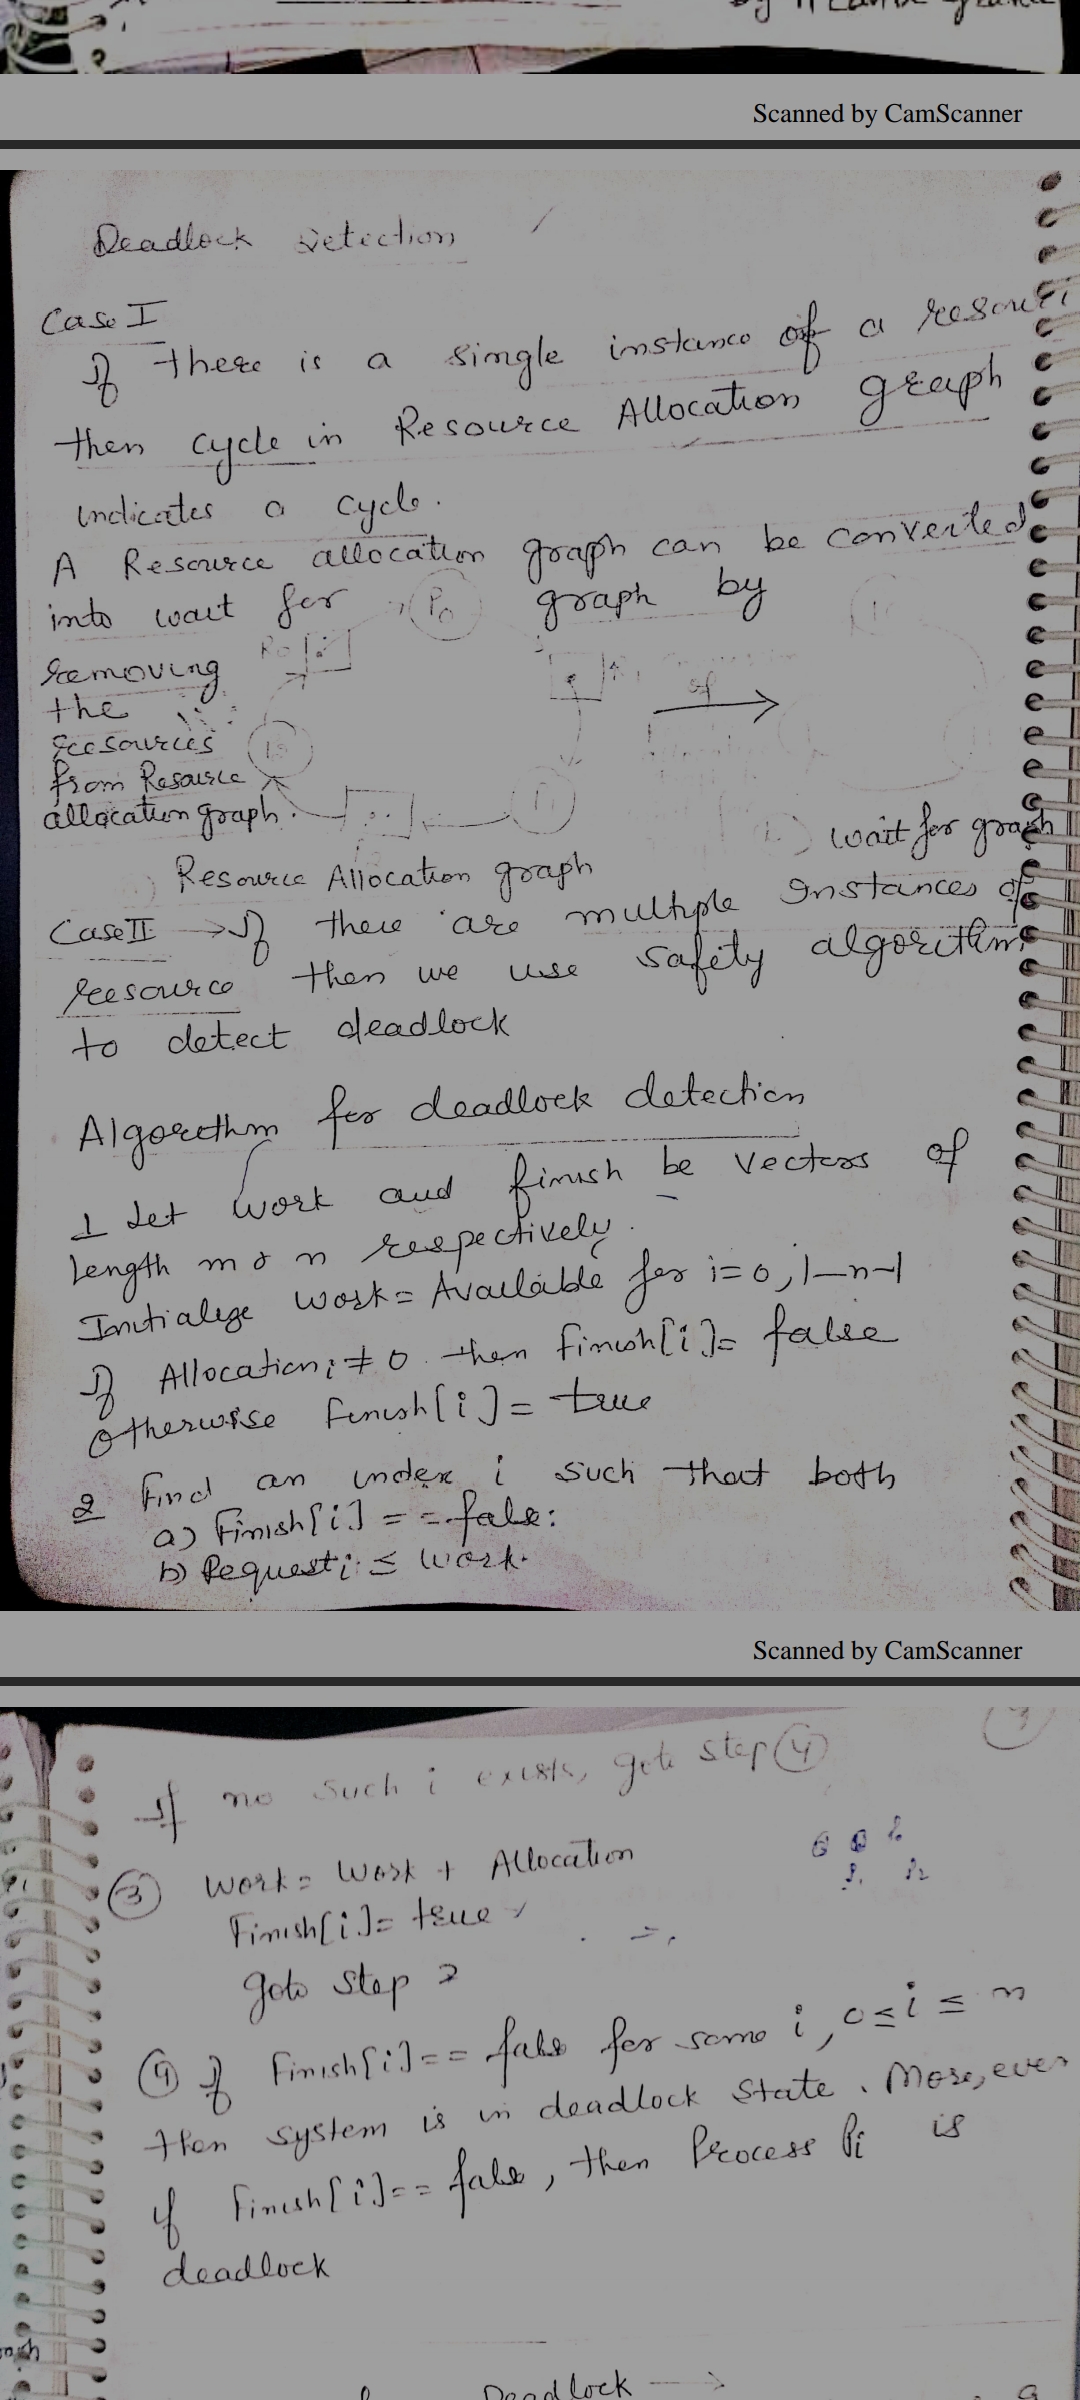 Scanned by CamScanner
Deadlock Detection
Case I
If there is a single instance of a
then cycle in Resource Allocation graph
indicates a cycle.
A Resource allocation graph can be converted
into wait for graph by
P0
R0
removing
the
resources
from Resource
allocation graph.
wait for graph
Resource Allocation graph
Case II → If there are multiple Instances of
resource then we use safety algorithm
to detect deadlock
Algorithm for deadlock detection
1 Let work and finish be vectors of
length m & n respectively.
Initialize work = Available for i=0,1-n-1
If Allocationi ≠ 0 then Finish[i] = false
Otherwise Finish[i] = true
2 Find an index i such that both
a) Finish[i] == false:
b) Requesti ≤ work.
Scanned by CamScanner
If no such i exists, goto step 4
3 Work = Work + Allocation
Finish[i] = true
goto step 2
4 If Finish[i] == false for some i, 0≤i≤n
then system is in deadlock state. More,over
if Finish[i] == false, then Process Pi is
deadlock
Deadlock →